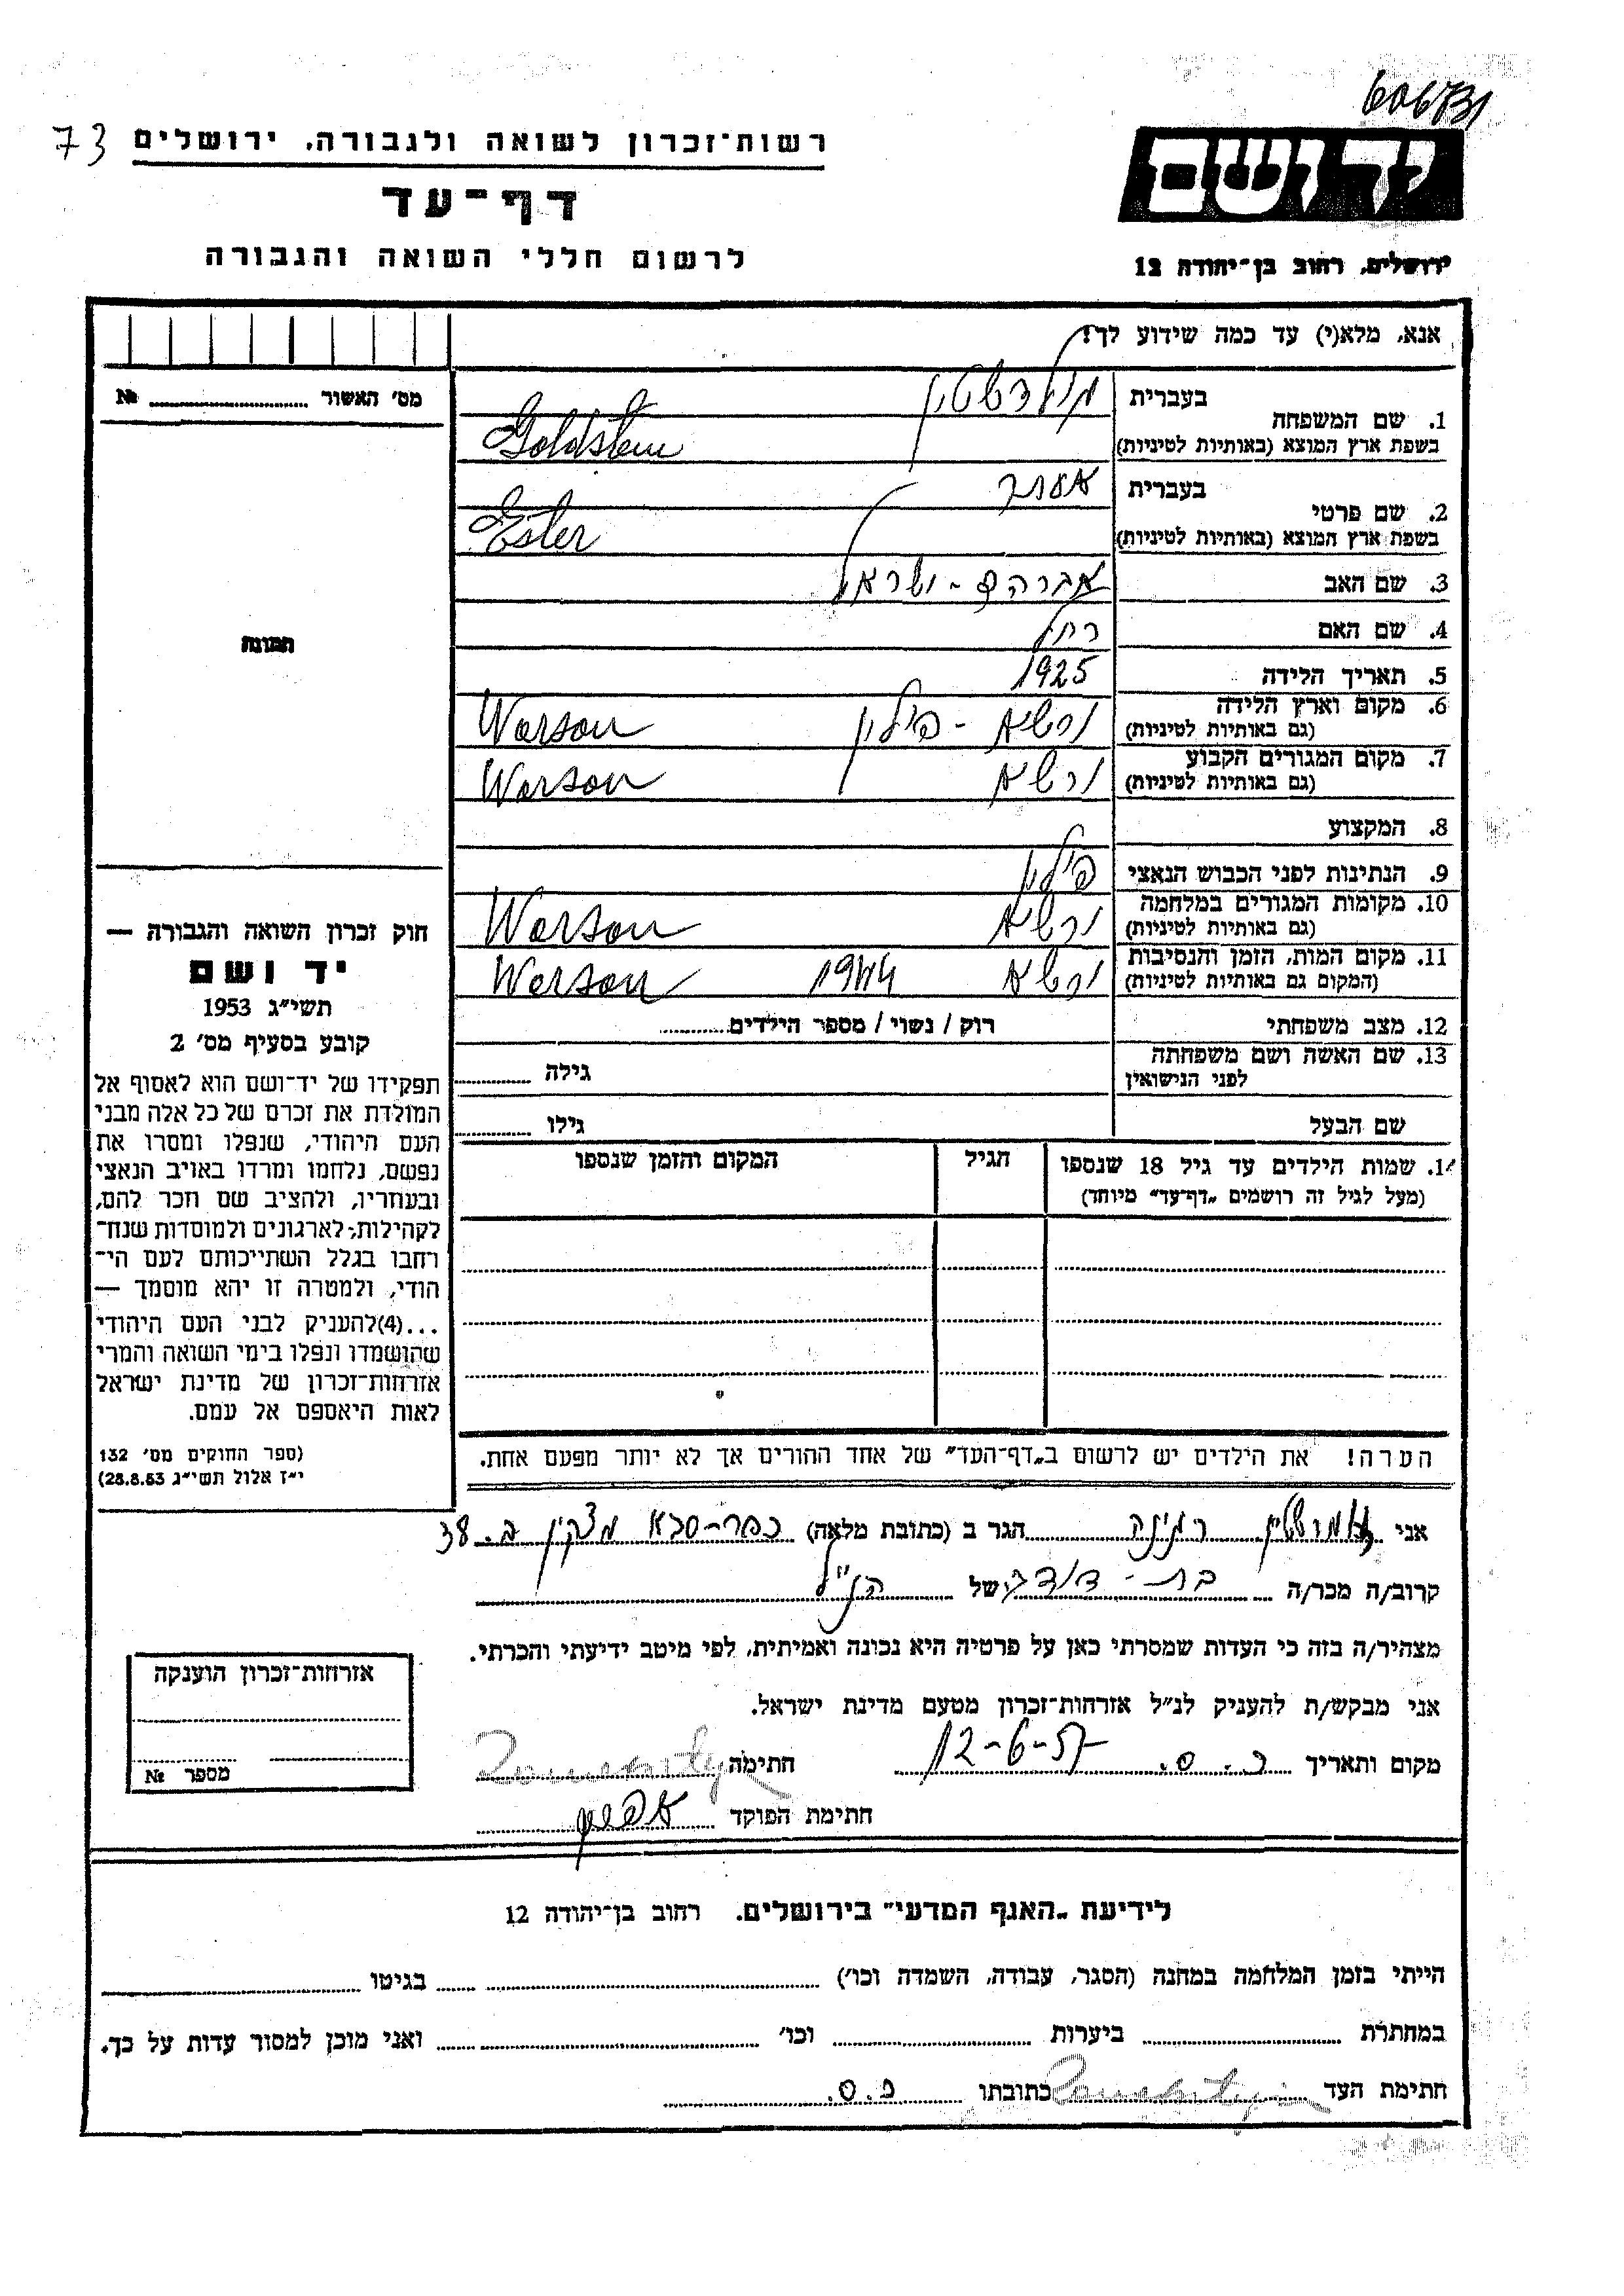 606731
73
רשות־זכרון לשואה ולגבורה, ירושלים
דף־עד
לרשום חללי השואה והגבורה
יד ושם
ירושלים, רחוב בן־יהודה 12
אנא, מלא(י) עד כמה שידוע לך!
מס' האשור № 
תמונה
1. שם המשפחה בעברית גולדשטיין
בשפת ארץ המוצא (באותיות לטיניות) Goldstein
2. שם פרטי בעברית אסתר
בשפת ארץ המוצא (באותיות לטיניות) Ester
3. שם האב אברהם - ישראל
4. שם האם רחל
5. תאריך הלידה 1925
6. מקום וארץ הלידה ורשא - פולין Warsaw
(גם באותיות לטיניות)
7. מקום המגורים הקבוע ורשא Warsaw
(גם באותיות לטיניות)
8. המקצוע
9. הנתינות לפני הכבוש הנאצי פולין
10. מקומות המגורים במלחמה ורשא Warsaw
(גם באותיות לטיניות)
11. מקום המות, הזמן והנסיבות ורשא 1944 Warsaw
(המקום גם באותיות לטיניות)
12. מצב משפחתי רוק / נשוי / מספר הילדים
13. שם האשה ושם משפחתה גילה
לפני הנישואין
שם הבעל גילו
14. שמות הילדים עד גיל 18 שנספו הגיל המקום והזמן שנספו
(מעל לגיל זה רושמים "דף־עד" מיוחד)
הערה! את הילדים יש לרשום ב"דף־העד" של אחד ההורים אך לא יותר מפעם אחת.
חוק זכרון השואה והגבורה —
יד ושם
תשי"ג 1953
קובע בסעיף מס' 2
תפקידו של יד־ושם הוא לאסוף אל
המולדת את זכרם של כל אלה מבני
העם היהודי, שנפלו ומסרו את
נפשם, נלחמו ומרדו באויב הנאצי
ובעוזריו, ולהציב שם וזכר להם,
לקהילות, לארגונים ולמוסדות שנח־
רבו בגלל השתייכותם לעם הי־
הודי, ולמטרה זו יהא מוסמך —
...(4) להעניק לבני העם היהודי
שהושמדו ונפלו בימי השואה והמרי
אזרחות־זכרון של מדינת ישראל
לאות היאספם אל עמם.
(ספר החוקים מס' 132
י"ז אלול תשי"ג 28.8.53)
אני רנינה הגר ב (כתובת מלאה) כפר-סבא ב. 38
קרוב/ה מכר/ה בת-דודה של הנ"ל
מצהיר/ה בזה כי העדות שמסרתי כאן על פרטיה היא נכונה ואמיתית, לפי מיטב ידיעתי והכרתי.
אני מבקש/ת להעניק לנ"ל אזרחות־זכרון מטעם מדינת ישראל.
מקום ותאריך כ.ס. 12-6-57 חתימה
חתימת הפוקד
אזרחות־זכרון הוענקה
מספר №
לידיעת "האגף המדעי" בירושלים, רחוב בן־יהודה 12
הייתי בזמן המלחמה במחנה (הסגר, עבודה, השמדה וכו') בגיטו
במחתרת ביערות וכו' ואני מוכן למסור עדות על כך.
חתימת העד כתובתו כ.ס.